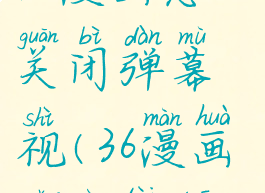 guān bì dàn mù
关闭弹幕
shì màn huà
视(36漫画